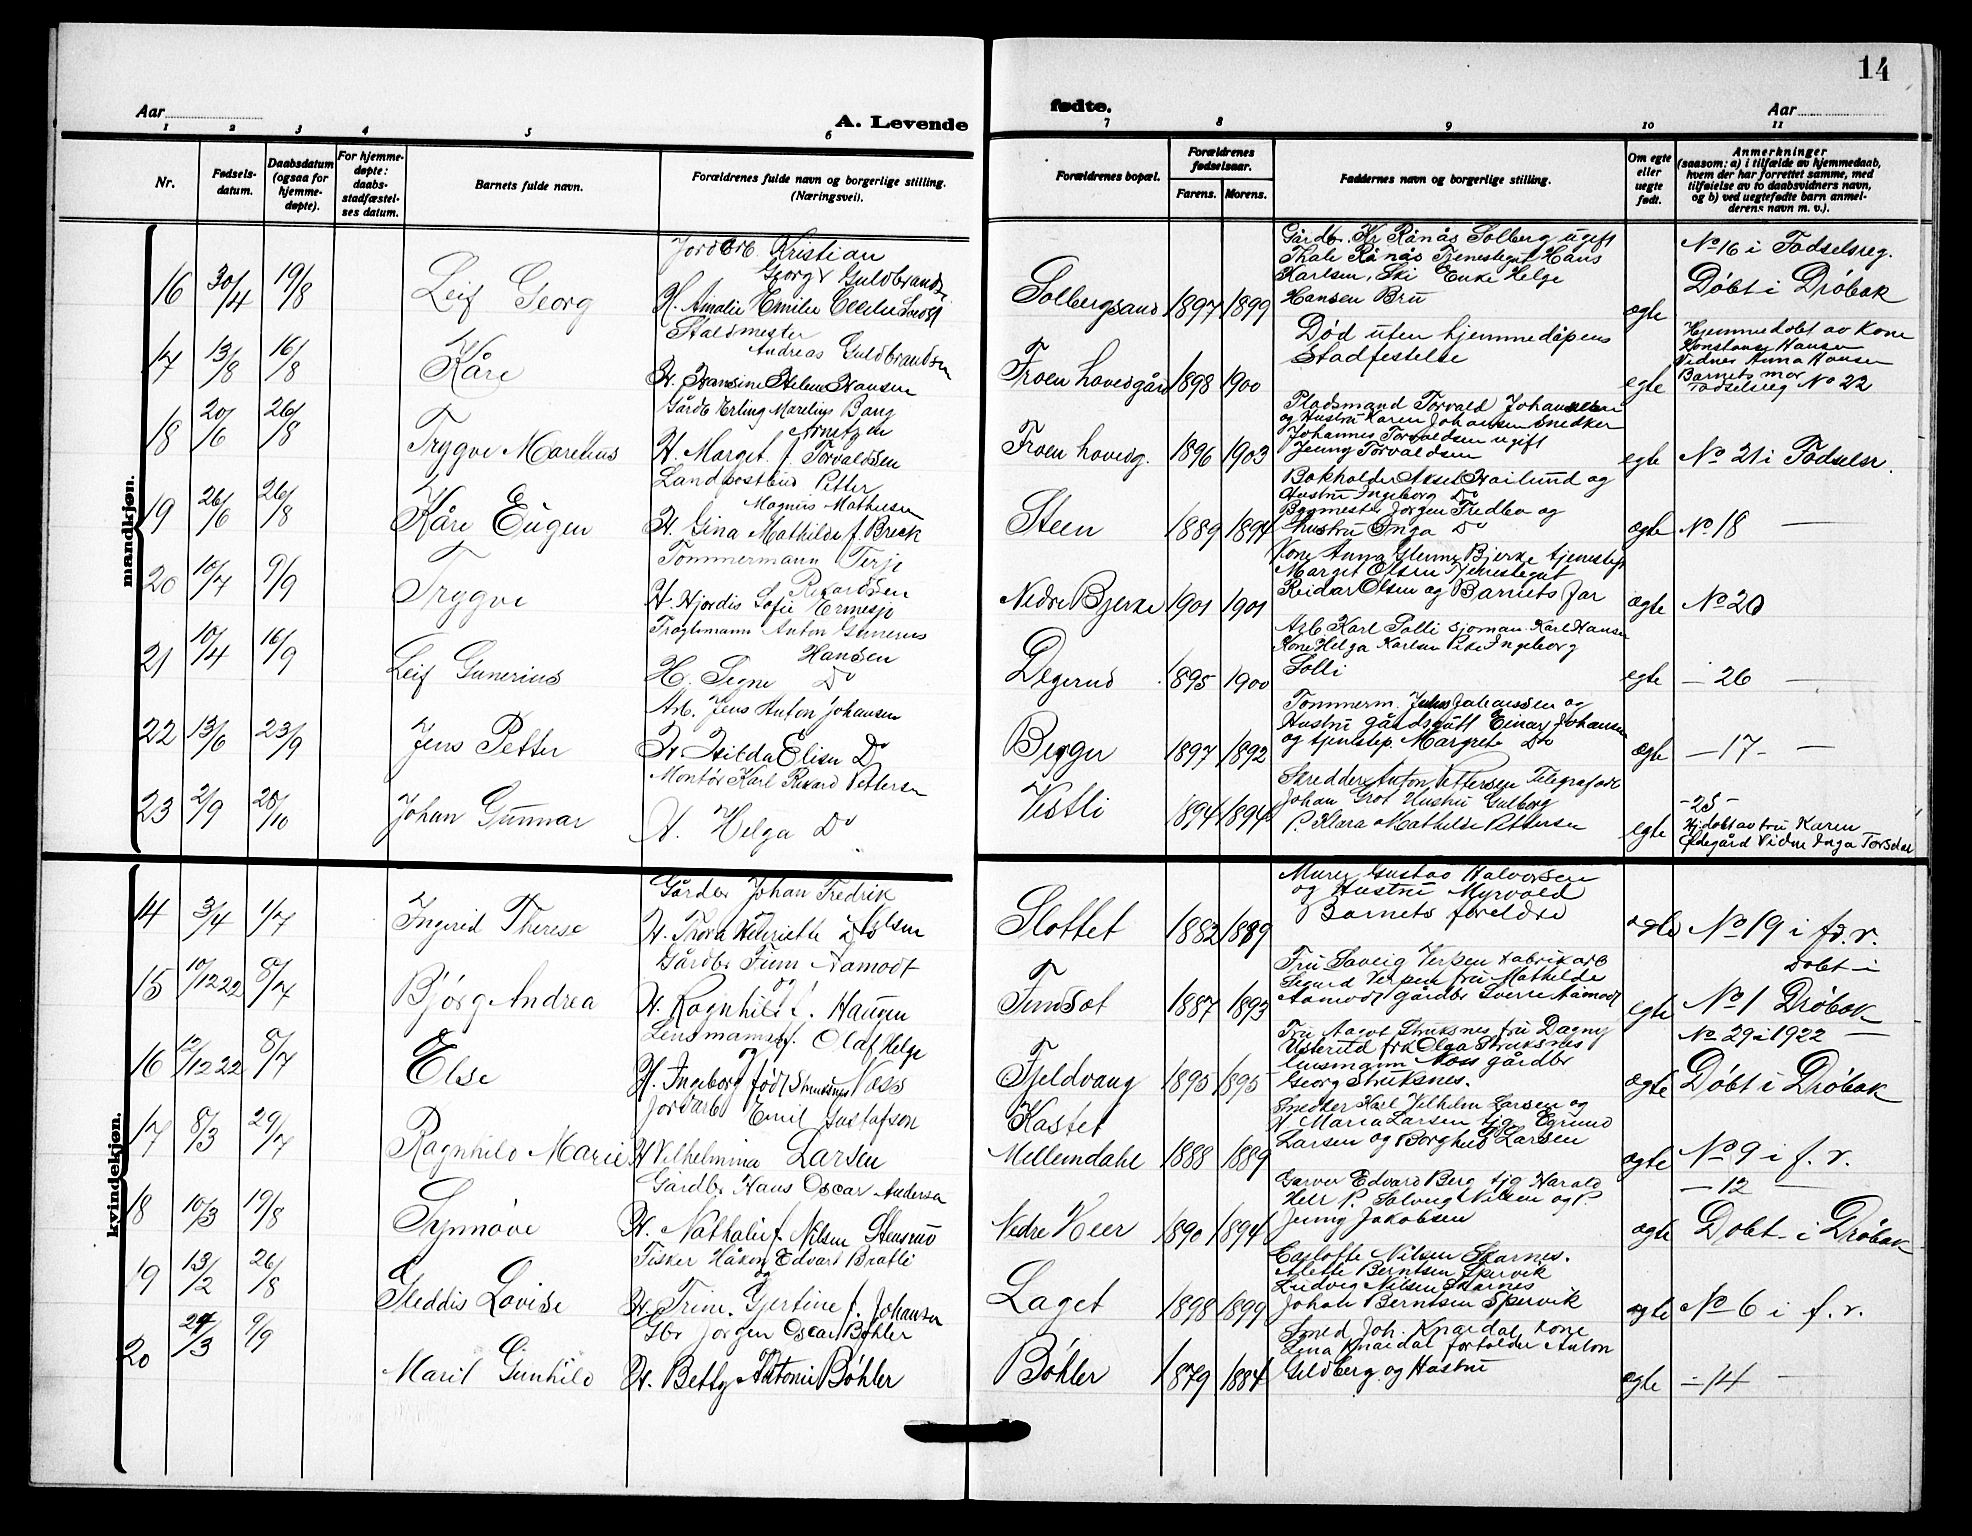 14
Aar
A. Levende
fødte.
Aar
1 2 3 4 5 6 7 8 9 10 11
Nr.
Fødsels-
datum.
Daabsdatum
(ogsaa for
hjemme-
døpte).
For hjemme-
døpte:
daabs-
stadfæstel-
ses datum.
Barnets fulde navn.
Forældrenes fulde navn og borgerlige stilling.
(Næringsvei).
Forældrenes bopæl.
Forældrenes
fødselsaar.
Farens. Morens.
Faddernes navn og borgerlige stilling.
Om egte
eller
uegte
født.
Anmerkninger
(saasom: a) i tilfælde av hjemmedaab,
hvem der har forrettet samme, med
tilføielse av to daabsvidners navn,
og b) ved uegtefødte barn anmel-
derens navn m. v.).
mandkjøn.
16 30/4 19/8 Leif Georg
Jordbrb. Kristian
Georg Guldbrands
H. Amalie Emilie
Solbergsand 1897 1899
Gårdbr. Kr Rånås Solberg ugift
Thale Rånås Tjenestegut Hans
Karlsen, Ski Enke Helge
Hansen Bru
egte
No 16 i Fødselsreg.
Døbt i Drøbak
17 13/8 16/8 Kåre
Staldmester
Andreas Guldbrandsen
H. Hansine Helene Hansen
Froen hovedgård 1898 1900
Død uten hjemmedøpens
Stadfestelse
egte
Hjemmedøbt av Kone
Konstanse Hansen
Vidner Anna Hansen
Barnets mor
Fødselsreg No 22
18 20/6 26/8 Trygve Marelius
Gårdb Erling Marelius Bang
Arntzen
H. Marget f. Torvaldsen
Froen hovedg. 1896 1903
Pladsmand Torvald Johansen
og Hustru Karen Johansen Snedker
Johannes Torvaldsen ugift
Jenny Torvaldsen
egte
No 21 i Fødselsr.
19 26/6 26/8 Kåre Eugen
Landpostbud Petter
Magnus Mathisen
H. Gina Mathilde f. Breek
Steen 1889 1894
Bokholder Aksel Hoilund og
Hustru Ingeborg Do
Bygmester Jørgen Fredbo og
Hustru Inga Do
egte
No 18 —
20 10/7 9/9 Trygve
Tømmermann Terje
Rikardsen
H. Hjordis Sofie Ermesjø
Nedre Bjerke 1901 1901
Kone Anna Glenne Bjerke tjenestep
Marget Olsen Tjenestegut
Reidar Olsen og Barnets far
egte
No 20
21 10/4 16/9 Leif Gunerius
Anton Gunerius
Hansen
H. Signe Do
Degerud 1895 1900
Arb Karl Solli sjømann Karl Hansen
Kone Helga Karlsen Pike Ingeborg
Solli
egte
— 26 —
22 13/6 23/9 Jens Petter
Arb. Jens Anton Johansen
H. Hilda Elise Do
1897 1892
Tømmerm. Julius Johanssen og
Hustru gårdsgutt Einar Johansen
og tjenestep. Margrete Do
egte
— 17 — —
23 2/9 28/10 Johan Gunnar
Montør Karl Rikard Pettersen
H. Helga Do
Vestli 1894 1894
Skredder Anton Pettersen Telegrafarb
Johan Grot Hustru Gulborg
P. Klara Mathilde Pettersen
egte
- 25 -
Hjdøbt av fru Karen
Ødegård Vidne Inga Torsdal
kvindekjøn.
14 3/4 1/7 Ingrid Therese
Gårdbr Johan Fredrik
Olsen
H. Thora Henriette Do
Slottet 1882 1889
Murer Gustav Halvorsen
og Hustru Myrvold
Barnets foreldre
egte
No 19 i fr. r.
15 10/12 22 8/7 Bjørg Andrea
Gårdbr Finn Aamodt
og
H. Ragnhild f. Haugen
Fundsot 1887 1893
Fru Solveig Verpen Fabrikarb
Sigurd Verpen fru Mathilde
Aamodt gårdbr Sverre Aamodt
egte
Døbt i
No 1 Drøbak
16 12/12 22 8/7 Else
Lensmannsf. Olaf Helge
og
H. Ingeborg født Struksnes Voss
Fjeldvang 1895 1895
Fru Aagot Struksnes fru Dagny
Usterud frk Olga Struksnes
lensmann Voss gårdbr
Georg Struksnes.
egte
No 29 i 1922 —
Døbt i Drøbak
17 8/3 29/7 Ragnhild Marie
Jordarb Emil Gustafson
H Vilhelmina Larsen
Kastet
Mellemdahl 1888 1889
Snedker Karl Vilhelm Larsen og
H Maria Larsen tjg Egmund
Larsen og Borghild Larsen
egte
No 9 i f. r.
18 10/3 19/8 Synnøve
Gårdbr Hans Oscar Andersen
H. Nathalie f. Nilsen Stensrud
Nedre Heer 1890 1894
Garver Edvard Berg tjg Harald
Heer P. Solveig Nilsen og P.
Jenny Jakobsen
egte
— 12 —
Døbt i Drøbak
19 13/2 26/8 Gleddis Lovise
Fisker Håkon Edvart Bratli
og
H. Trine Gjertine f. Johansen
Laget 1898 1899
Caslotte Nilsen Skarnes.
Alette Berntsen Spervik
Ludvig Nilsen Skarnes
Johan Berntsen Spervik
egte
No 6 i f. r.
20 27/3 9/9 Marit Gunhild
Gbr Jørgen Oscar Bøhler
og
H. Betty Antonie Bøhler
Bøhler 1879 1884
Smed Joh. Knardal kone
Lina Knardal forholder Anton
Geldberg og Hustru
egte
— 14 —